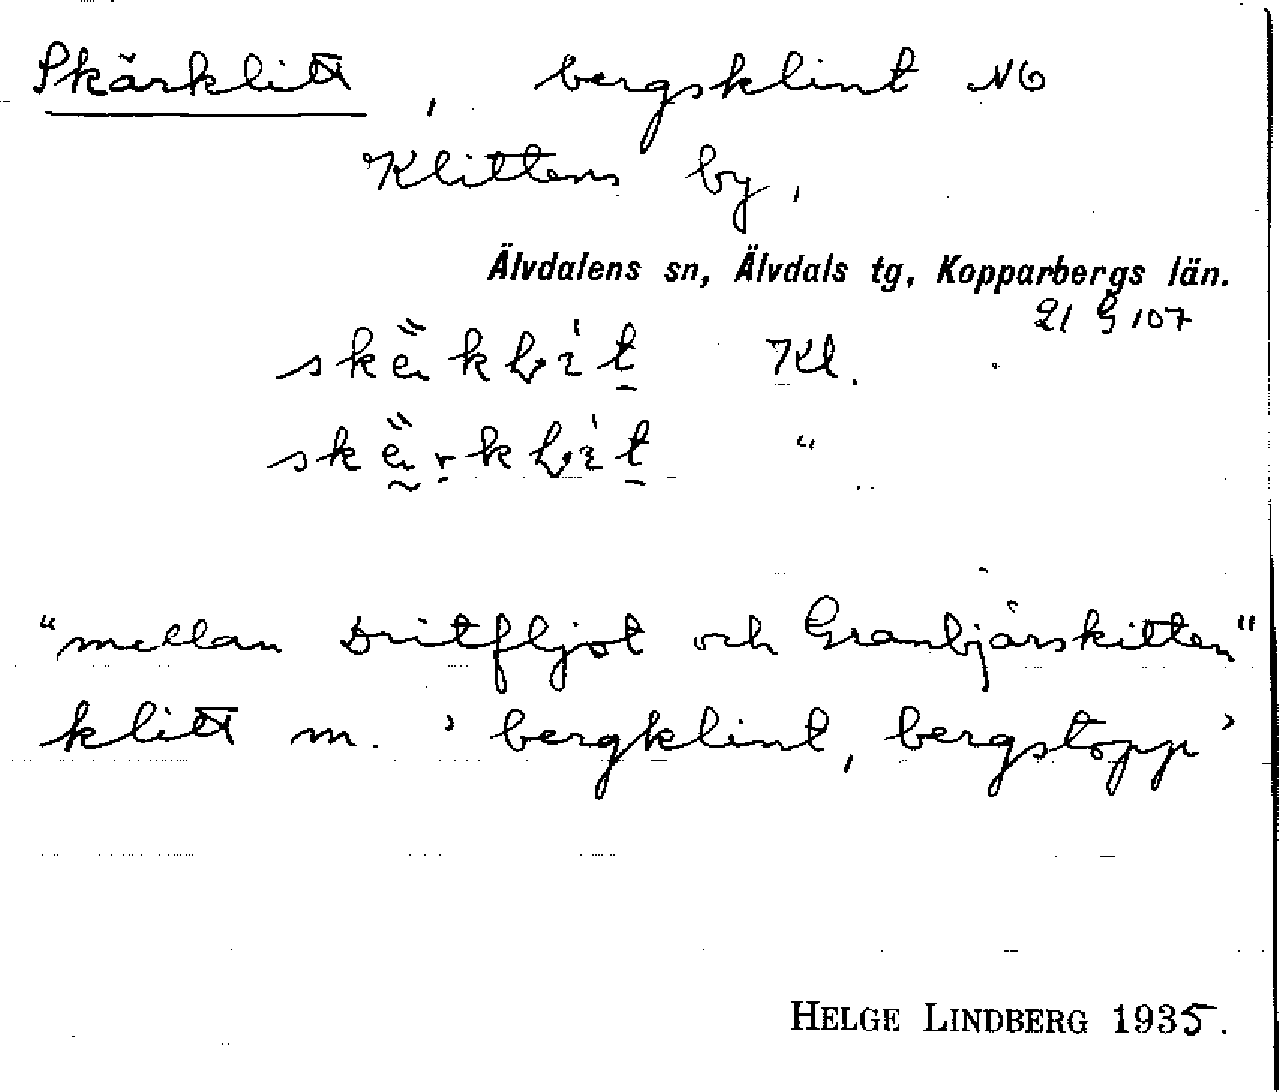 Skärklitt, bergsklint NO
Klittens by,
Älvdalens sn, Älvdals tg, Kopparbergs län.
21 g 107
Kl.
"
"mellan Dritfljot och Granbjärskitten"
klitt m. 'bergklint, bergstopp'
HELGE LINDBERG 1935.